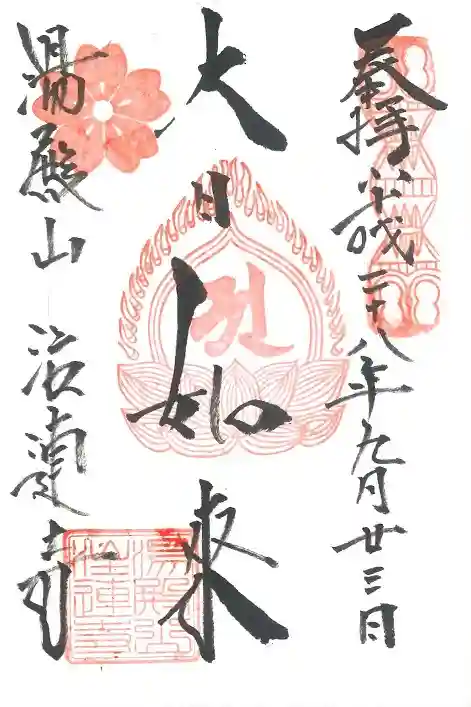 奉拝 平成二十八年九月廿三日
大日如来
湯殿山 注連寺
湯殿山
注連寺